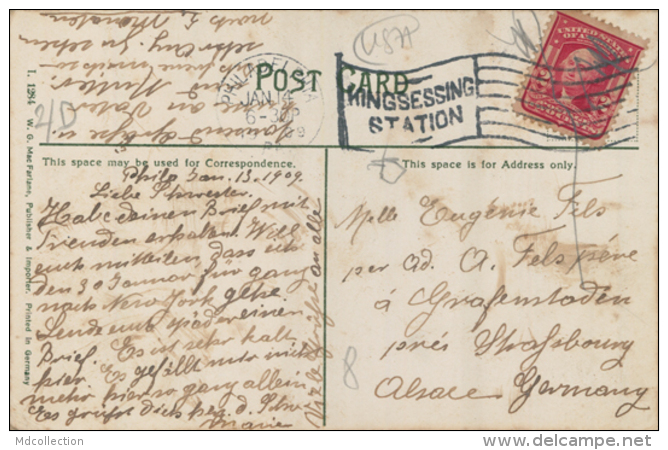 POST CARD
PHILADELPHIA
JAN 14
6-30P
KINGSESSING
STATION
UNITED STATES
This space may be used for Correspondence.
This space is for Address only.
I. 1284 W. G. MacFarlane, Publisher & Importer. Printed in Germany
Phila Jan. 13. 1909.
Liebe Schwester.
Habe deinen Brief mit
Freuden erhalten. Will
euch mitteilen dass ich
den 30 Januar für ganz
nach New York gehe.
Sende euch später einen
Brief. Es ist sehr kalt
hier. Es gefällt mir nicht
mehr hier so ganz allein
Es grüsst dich herz. d. Schw.
Marie
Viele Grüsse an alle
Mlle Eugénie Fels
per ad. A. Fels père
à Grafenstaden
près Strassbourg
Alsace Germany
USA
8
Mdcollection
www.delcampe.net